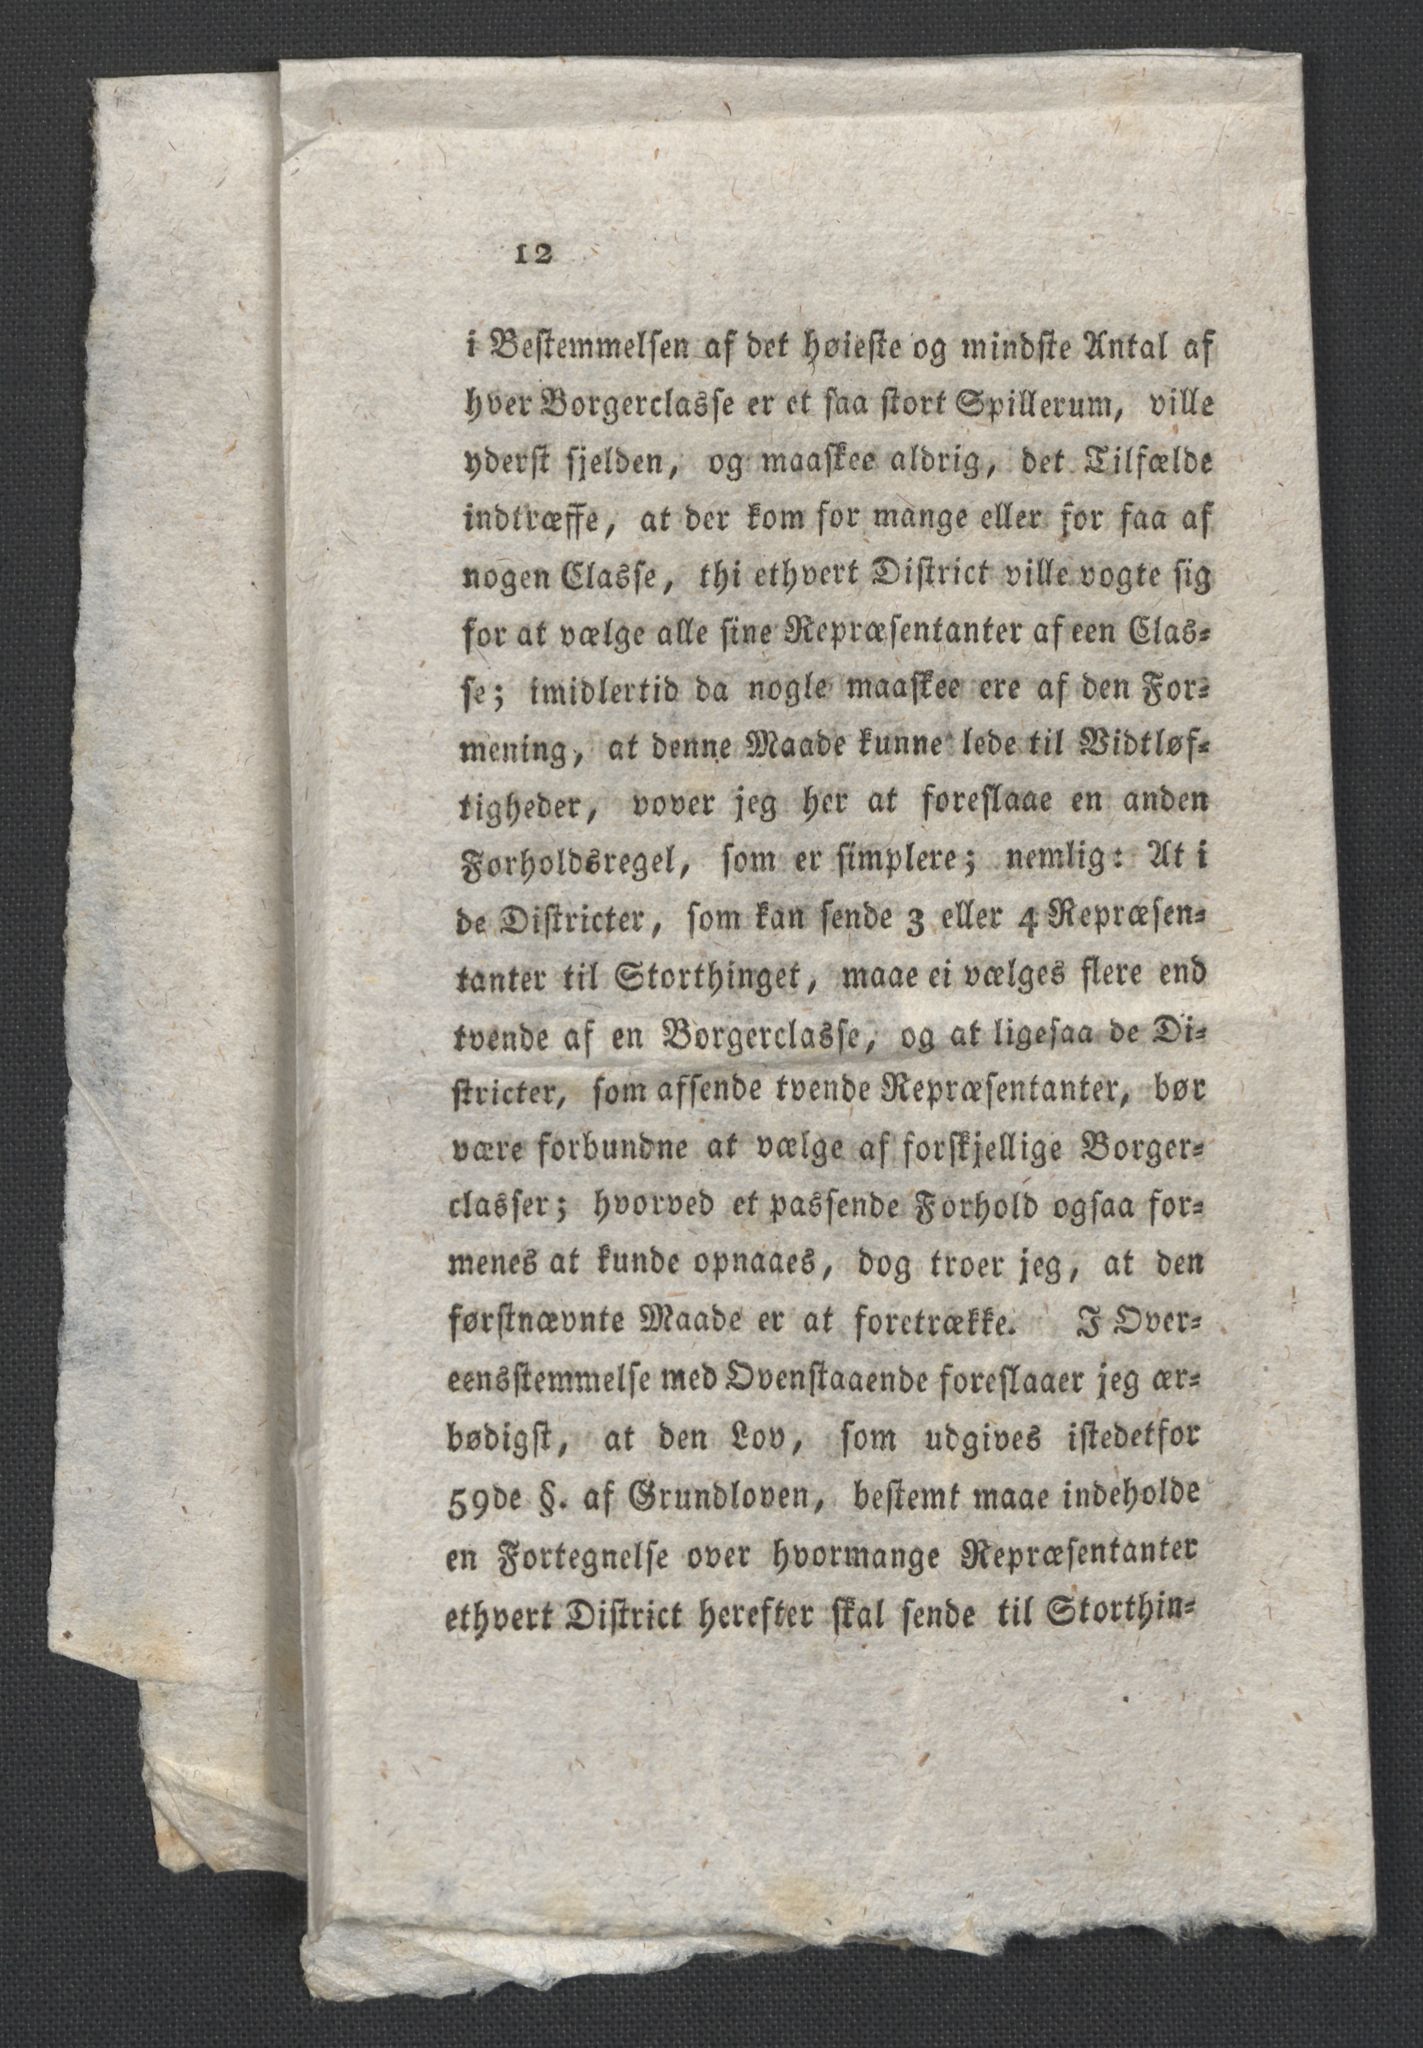 12
i Bestemmelsen af det høieste og mindste Antal af
hver Borgerclasse er et saa stort Spillerum, ville
yderst sjelden, og maaskee aldrig, det Tilfælde
indtræffe, at der kom for mange eller for faa af
nogen Classe, thi ethvert District ville vogte sig
for at vælge alle sine Repræsentanter af een Clas-
se; imidlertid da nogle maaskee ere af den For-
mening, at denne Maade kunne lede til Vidtløf-
tigheder, vover jeg her at foreslaae en anden
Forholdsregel, som er simplere; nemlig: At i
de Districter, som kan sende 3 eller 4 Repræsen-
tanter til Storthinget, maae ei vælges flere end
tvende af en Borgerclasse, og at ligesaa de Di-
stricter, som afsende tvende Repræsentanter, bør
være forbundne at vælge af forskjellige Borger-
classer; hvorved et passende Forhold ogsaa for-
menes at kunde opnaaes, dog troer jeg, at den
førstnævnte Maade er at foretrække. I Over-
eensstemmelse med Ovenstaaende foreslaaer jeg ær-
bødigst, at den Lov, som udgives istedetfor
59de §. af Grundloven, bestemt maae indeholde
en Fortegnelse over hvormange Repræsentanter
ethvert District herefter skal sende til Storthin-